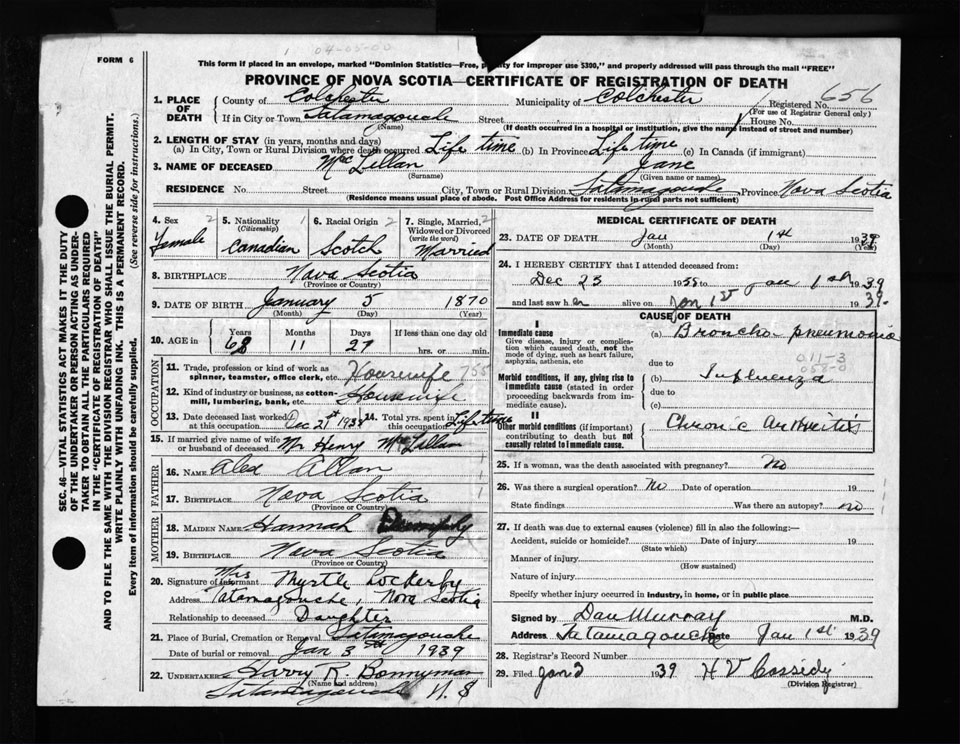 04-05-00
FORM 6
This form if placed in an envelope, marked "Dominion Statistics—Free, penalty for improper use $300," and properly addressed will pass through the mail "FREE"
PROVINCE OF NOVA SCOTIA—CERTIFICATE OF REGISTRATION OF DEATH
1. PLACE OF DEATH County of Colchester Municipality of Colchester Registered No. 656
(For use of Registrar General only)
If in City or Town, Tatamagouche Street House No.
(Name) (If death occurred in a hospital or institution, give the name instead of street and number)
2. LENGTH OF STAY (in years, months and days)
(a) In City, Town or Rural Division where death occurred Life time (b) In Province Life time (c) In Canada (if immigrant)
3. NAME OF DECEASED McLellan Jane
(Surname) (Given name or names)
RESIDENCE No. Street City, Town or Rural Division Tatamagouche Province Nova Scotia
(Residence means usual place of abode. Post Office Address for residents in rural parts not sufficient)
4. Sex 2 Female
5. Nationality (Citizenship) 1 Canadian
6. Racial Origin 2 Scotch
7. Single, Married, Widowed or Divorced (write the word) 2 Married
8. BIRTHPLACE Nova Scotia
(Province or Country)
9. DATE OF BIRTH January 5 1870
(Month) (Day) (Year)
10. AGE in Years Months Days If less than one day old
68 11 27 hrs. or min.
OCCUPATION
11. Trade, profession or kind of work as spinner, teamster, office clerk, etc. Housewife 755
12. Kind of industry or business, as cotton-mill, lumbering, bank, etc. Housewife
13. Date deceased last worked at this occupation Dec 21st 1938
14. Total yrs. spent in this occupation Life time
15. If married give name of wife or husband of deceased Mr Henry McLellan
FATHER
16. NAME Alex Allan
17. BIRTHPLACE Nova Scotia
(Province or Country)
MOTHER
18. MAIDEN NAME Hannah
19. BIRTHPLACE Nova Scotia
(Province or Country)
20. Signature of Informant Mrs Myrtle Lockerby
Address Tatamagouche, Nova Scotia
Relationship to deceased Daughter
21. Place of Burial, Cremation or Removal Tatamagouche
Date of burial or removal Jan 3rd 1939
22. UNDERTAKER Harry R. Bonnyman
(Name and address)
Tatamagouche N. S
MEDICAL CERTIFICATE OF DEATH
23. DATE OF DEATH Jan 1st 1939
(Month) (Day)
24. I HEREBY CERTIFY that I attended deceased from:
Dec 23 19 to Jan 1st 1939
and last saw her alive on Jan 1st 1939.
CAUSE OF DEATH
I
Immediate cause
Give disease, injury or complication which caused death, not the mode of dying, such as heart failure, asphyxia, asthenia, etc
(a) Broncho pneumonia
011-3
058-0
due to
Morbid conditions, if any, giving rise to immediate cause (stated in order proceeding backwards from immediate cause).
(b) Influenza
due to
(c)
II
Other morbid conditions (if important) contributing to death but not causally related to immediate cause.
Chronic Arthritis
25. If a woman, was the death associated with pregnancy? No
26. Was there a surgical operation? No Date of operation 19
State findings Was there an autopsy? no
27. If death was due to external causes (violence) fill in also the following:—
Accident, suicide or homicide? Date of injury 19
(State which)
Manner of injury
(How sustained)
Nature of injury
Specify whether injury occurred in industry, in home, or in public place
Signed by Dan Murray M.D.
Address Tatamagouche Date Jan 1st 1939
28. Registrar's Record Number
29. Filed Jan 2 1939 H V Cassidy
(Division Registrar)
SEC. 46—VITAL STATISTICS ACT MAKES IT THE DUTY
OF THE UNDERTAKER OR PERSON ACTING AS UNDER-
TAKER TO OBTAIN ALL THE PARTICULARS REQUIRED
IN THE "CERTIFICATE OF REGISTRATION OF DEATH"
AND TO FILE THE SAME WITH THE DIVISION REGISTRAR WHO SHALL ISSUE THE BURIAL PERMIT.
WRITE PLAINLY WITH UNFADING INK. THIS IS A PERMANENT RECORD.
Every item of information should be carefully supplied. (See reverse side for instructions.)